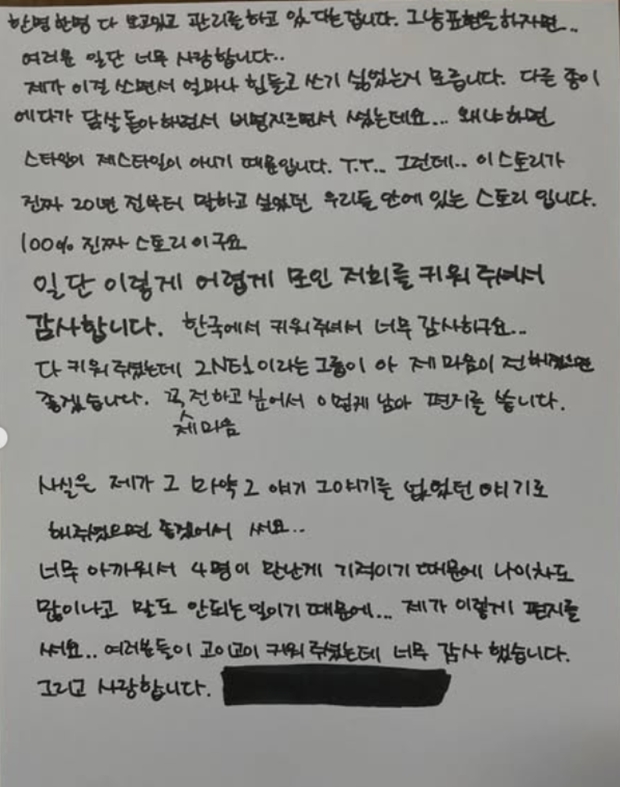 한명한명 다 보고있고 관리를하고 있 다는겁니다. 그냥표현을하자면..
여러분 일단 너무 사랑합니다..
제가 이걸 쓰면서 얼마나 힘들고 쓰기 싫었는지 모릅니다. 다른 종이
에다가 닭살돋아하면서 비명지르면서 썼는데요... 왜냐하면
스타일이 제스타일이 아니기 때문입니다. T.T.. 그런데.. 이스토리가
진짜 20년 전부터 말하고 싶었던 우리들 안에 있는 스토리 입니다.
100% 진짜 스토리이구요
일단 이렇게 어렵게 모인 저희를 키워 주셔서
감사합니다. 한국에서 키워주셔서 너무 감사하구요...
다 키워 주셨는데 2NE1이라는그룹이 아 제마음이 전해졌으면
좋겠습니다. 꼭 전하고 싶어서 이렇게 남아 편지를 씁니다.
제마음
사실은 제가 그 마약 그 얘기 그이야기를 없었던 얘기로
해주셨으면 좋겠어서 써요..
너무 아까워서 4명이 만난게 기적이기 때문에 나이차도
많이나고 말도 안되는일이기 때문에... 제가 이렇게 편지를
써요.. 여러분들이 고이고이 키워 주셨는데 너무 감사 했습니다.
그리고 사랑합니다.